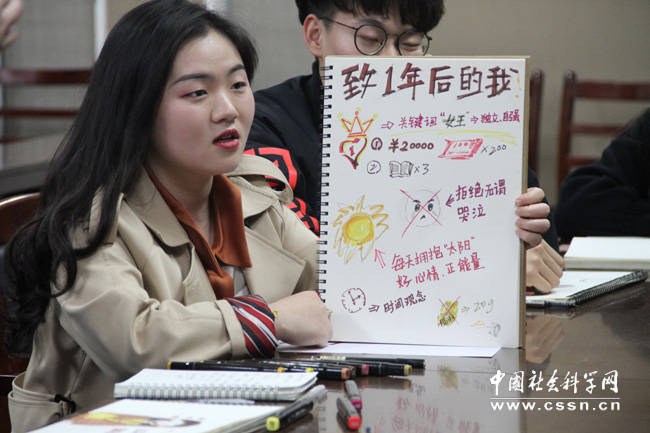 致1年后的我
⇒ 关键词“女王”→独立、自强
① ￥20000 ×200
② ×3
拒绝无谓
哭泣
每天拥抱“太阳”
好心情、正能量
⇒时间观念
中国社会科学网
www.cssn.cn